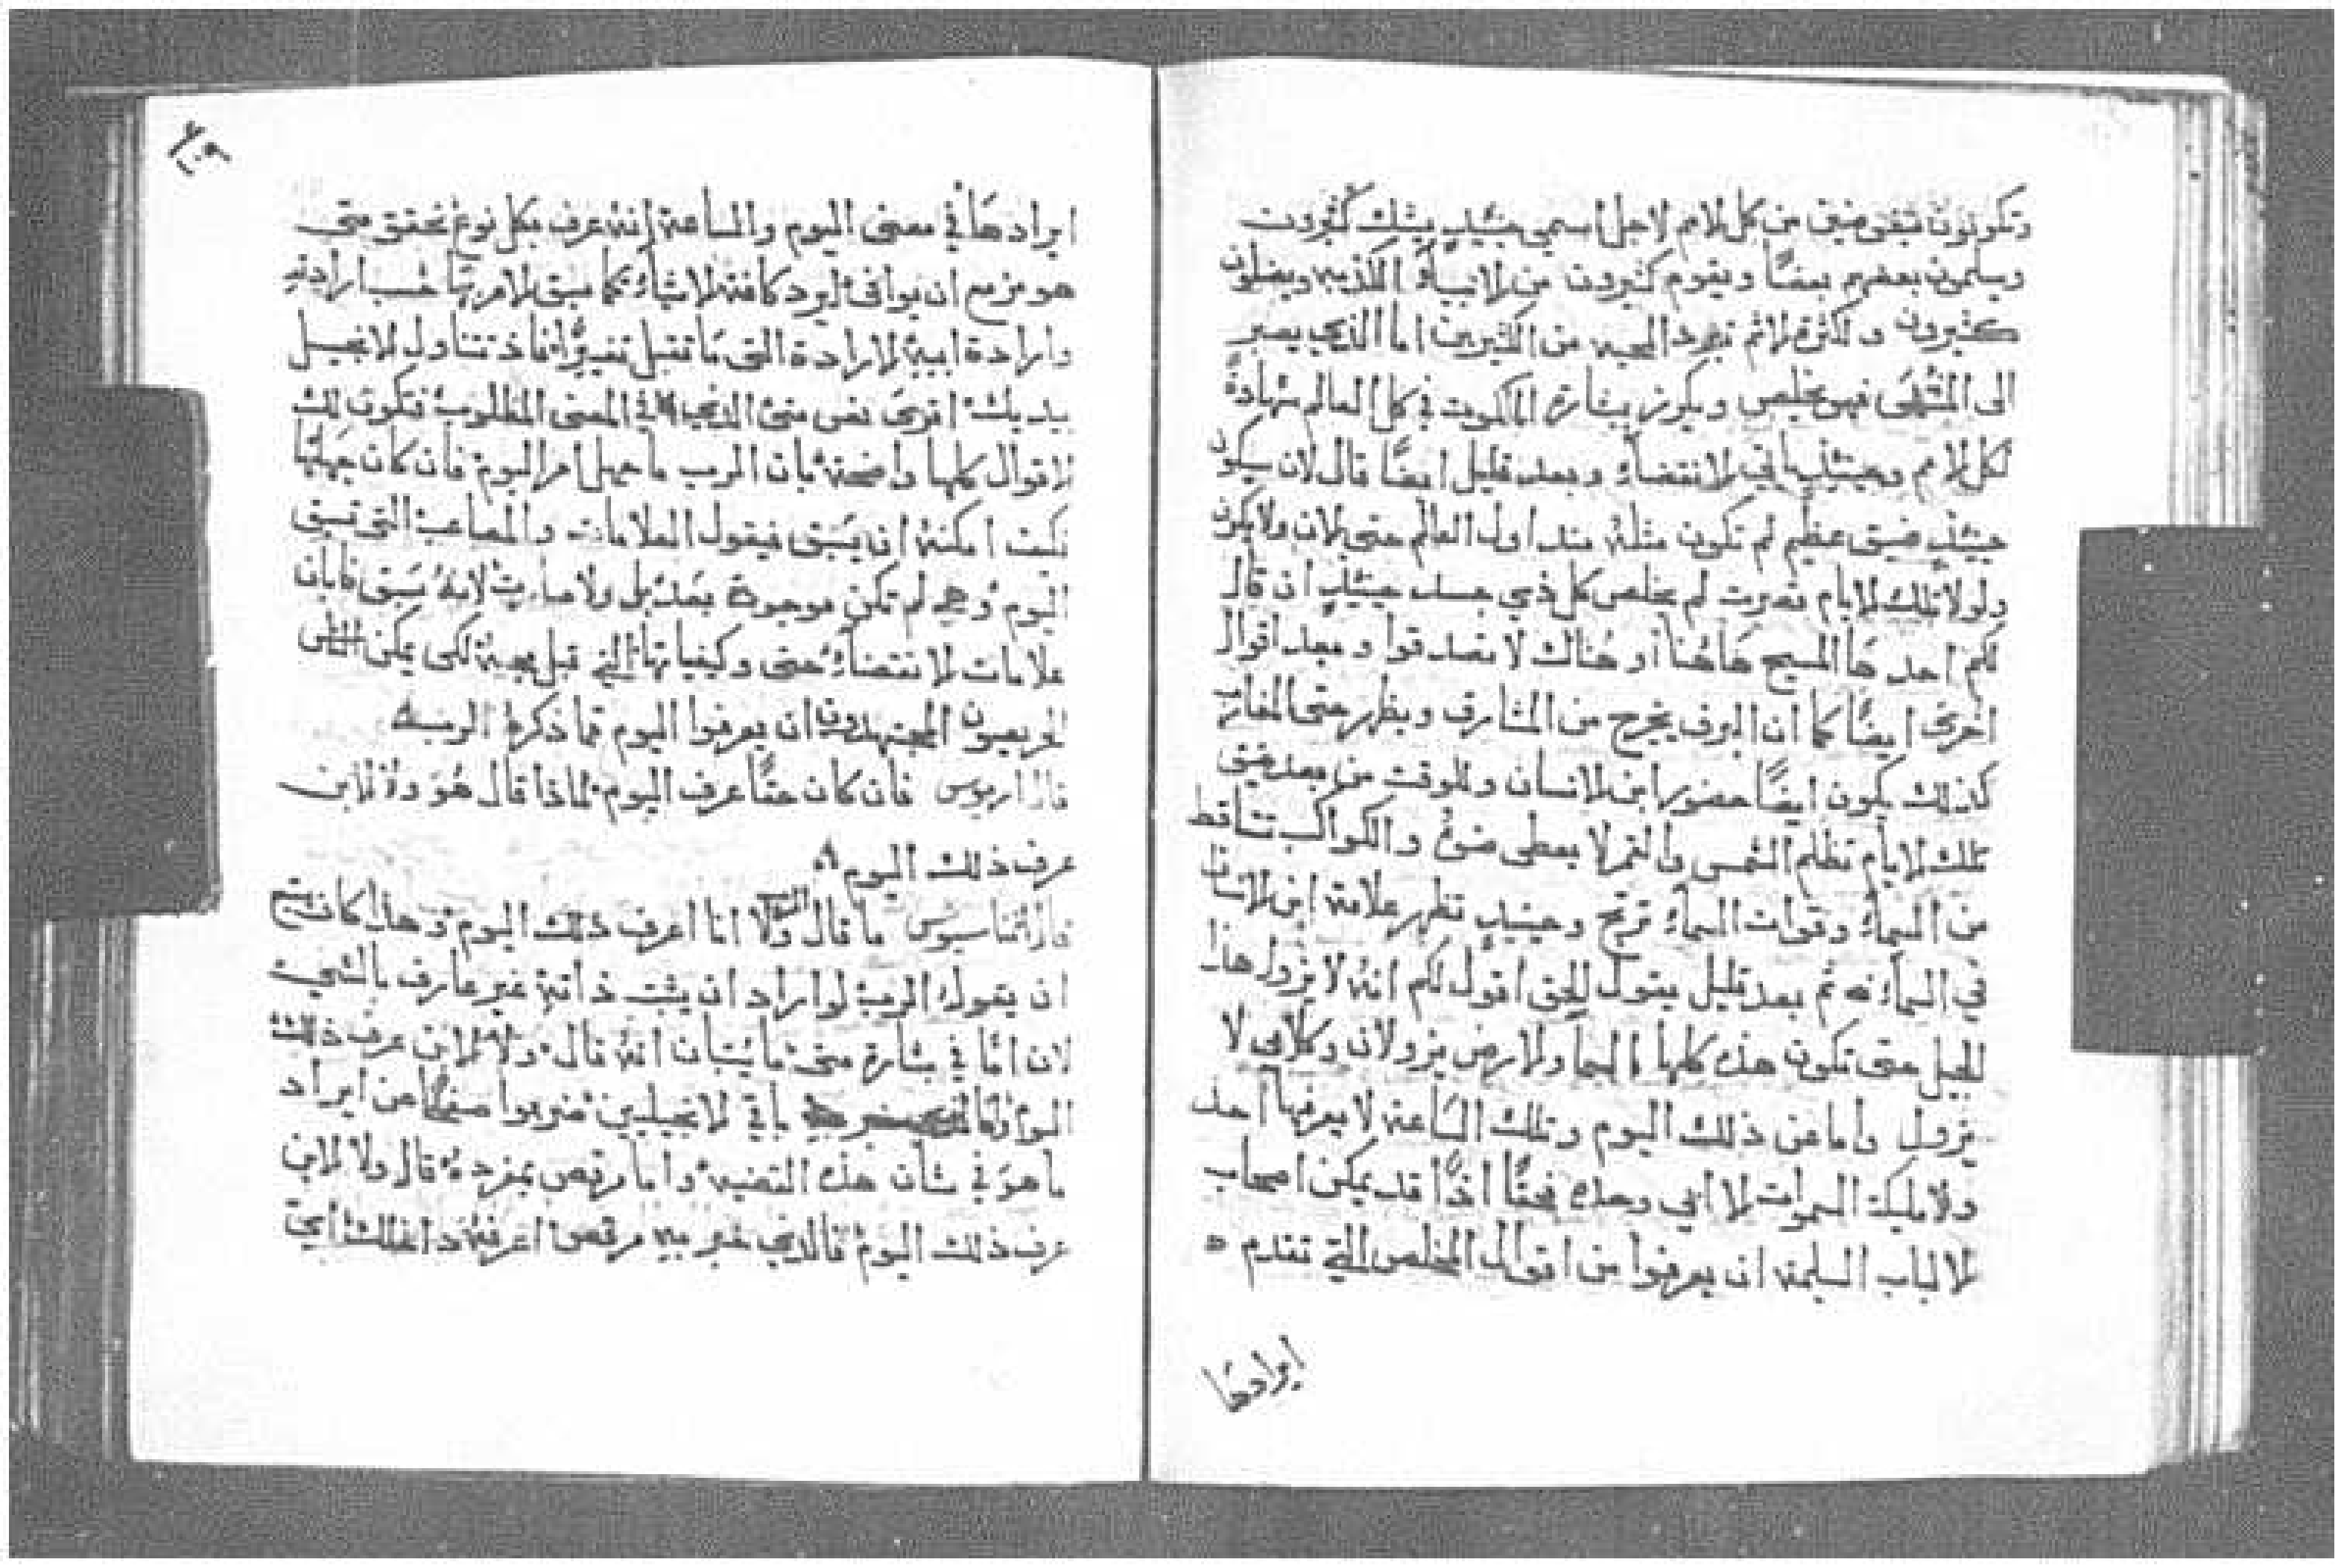 وتكونون تبغض ضيق من كل الامم لاجل اسمي حينيذٍ يشك كثيرون
ويسلمون بعضهم بعضًا ويقوم كثيرون من الانبياء الكذبه ويضلون
كثيرون ولكثرة الاثم تبرد المحبه من الكثيرين اما الذي يصبر
الى المنتهى فهو يخلص ويكرز ببشارة الملكوت في كل العالم شهادةً
لكل الامم وحينيذٍ ياتي الانقضاء وبعد قليل ايضًا قال لان سيكون
حينيذٍ ضيق عظيم لم تكون مثله منذ اول العالم حتى الان ولا يكون
ولولا تلك الايام قصرت لم يخلص كل ذي جسد حينيذٍ ان قال
لكم احد ها المسيح هاهنا او هناك لا تصدقوا وبعد اقوال
اخرى ايضًا كما ان البرق يخرج من المشارق ويظهر حتى المغارب
كذلك يكون ايضًا حضور ابن الانسان وللوقت من بعد ضيق
تلك الايام تظلم الشمس والقمر لا يعطى ضوه والكواكب تتساقط
من السماء وقوات السماء ترتج وحينيذٍ تظهر علامة ابن الانسان
في السماء ثم بعد قليل يقول الحق اقول لكم انه لا يزول هذا
الجيل حتى تكون هذه كلها السما والارض يزولان وكلامى لا
يزول واما عن ذلك اليوم وتلك الساعة لا يعرفها احد
ولا مليكة السموات الا ابي وحده فحقًا اذًا قد يمكن اصحاب
الالباب السليمة ان يعرفوا من اقوال المخلص التي تقدم
ايرادها
٢٠٩
ايرادها في معنى اليوم والساعة انه عرف بكل نوع تحقق متى
هو مزمع ان يوافى ليرد كافة الاشياء كما سبق الامر بها حسب ارادته
وارادة ابيه الارادة التي ما تقبل تغييرًا فاذ تتناول الانجيل
بيديك اقرى نص متى الذي في المعنى المطلوب فتكون لك
الاقوال كلها واضحة بان الرب ما جهل امر اليوم فان كان جهلها
فكيف امكنه ان يسبق فيقول العلامات والمصاعب التي تسبق
اليوم وهي لم تكن موجودة بعد بل ولا صارت لانه سبق فابان
علامات الانقضاء حتى وكيفياتها التي قبل مجيه لكي يمكن
المجتهدون ان يعرفوا اليوم مما ذكره الرب
قال اريوس فان كان حقًا عرف اليوم لماذا قال هو ولا الابن
عرف ذلك اليوم
قال اثناسيوس ما قال المسيح ولا انا اعرف ذلك اليوم وهذا كان يتبع
ان يقوله الرب لو اراد ان يثبت ذاته غير عارف بالشي
لان اما في بشارة متى ما يتبان انه قال ولا الابن عرف ذلك
اليوم باقي الانجيليين ضربوا صفحًا عن ايراد
ما هو في شان هذه القضيه واما مرقص بمفرده قال ولا الابن
عرف ذلك اليوم فالذي خبر به مرقص اعرفه